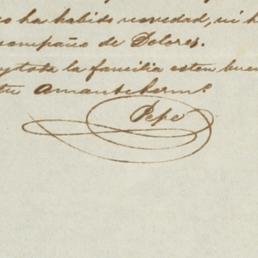 ha habido novedad, ni h
compaño de Dolores.
y toda la familia esten buen
tu Amante herm.º
Pepe